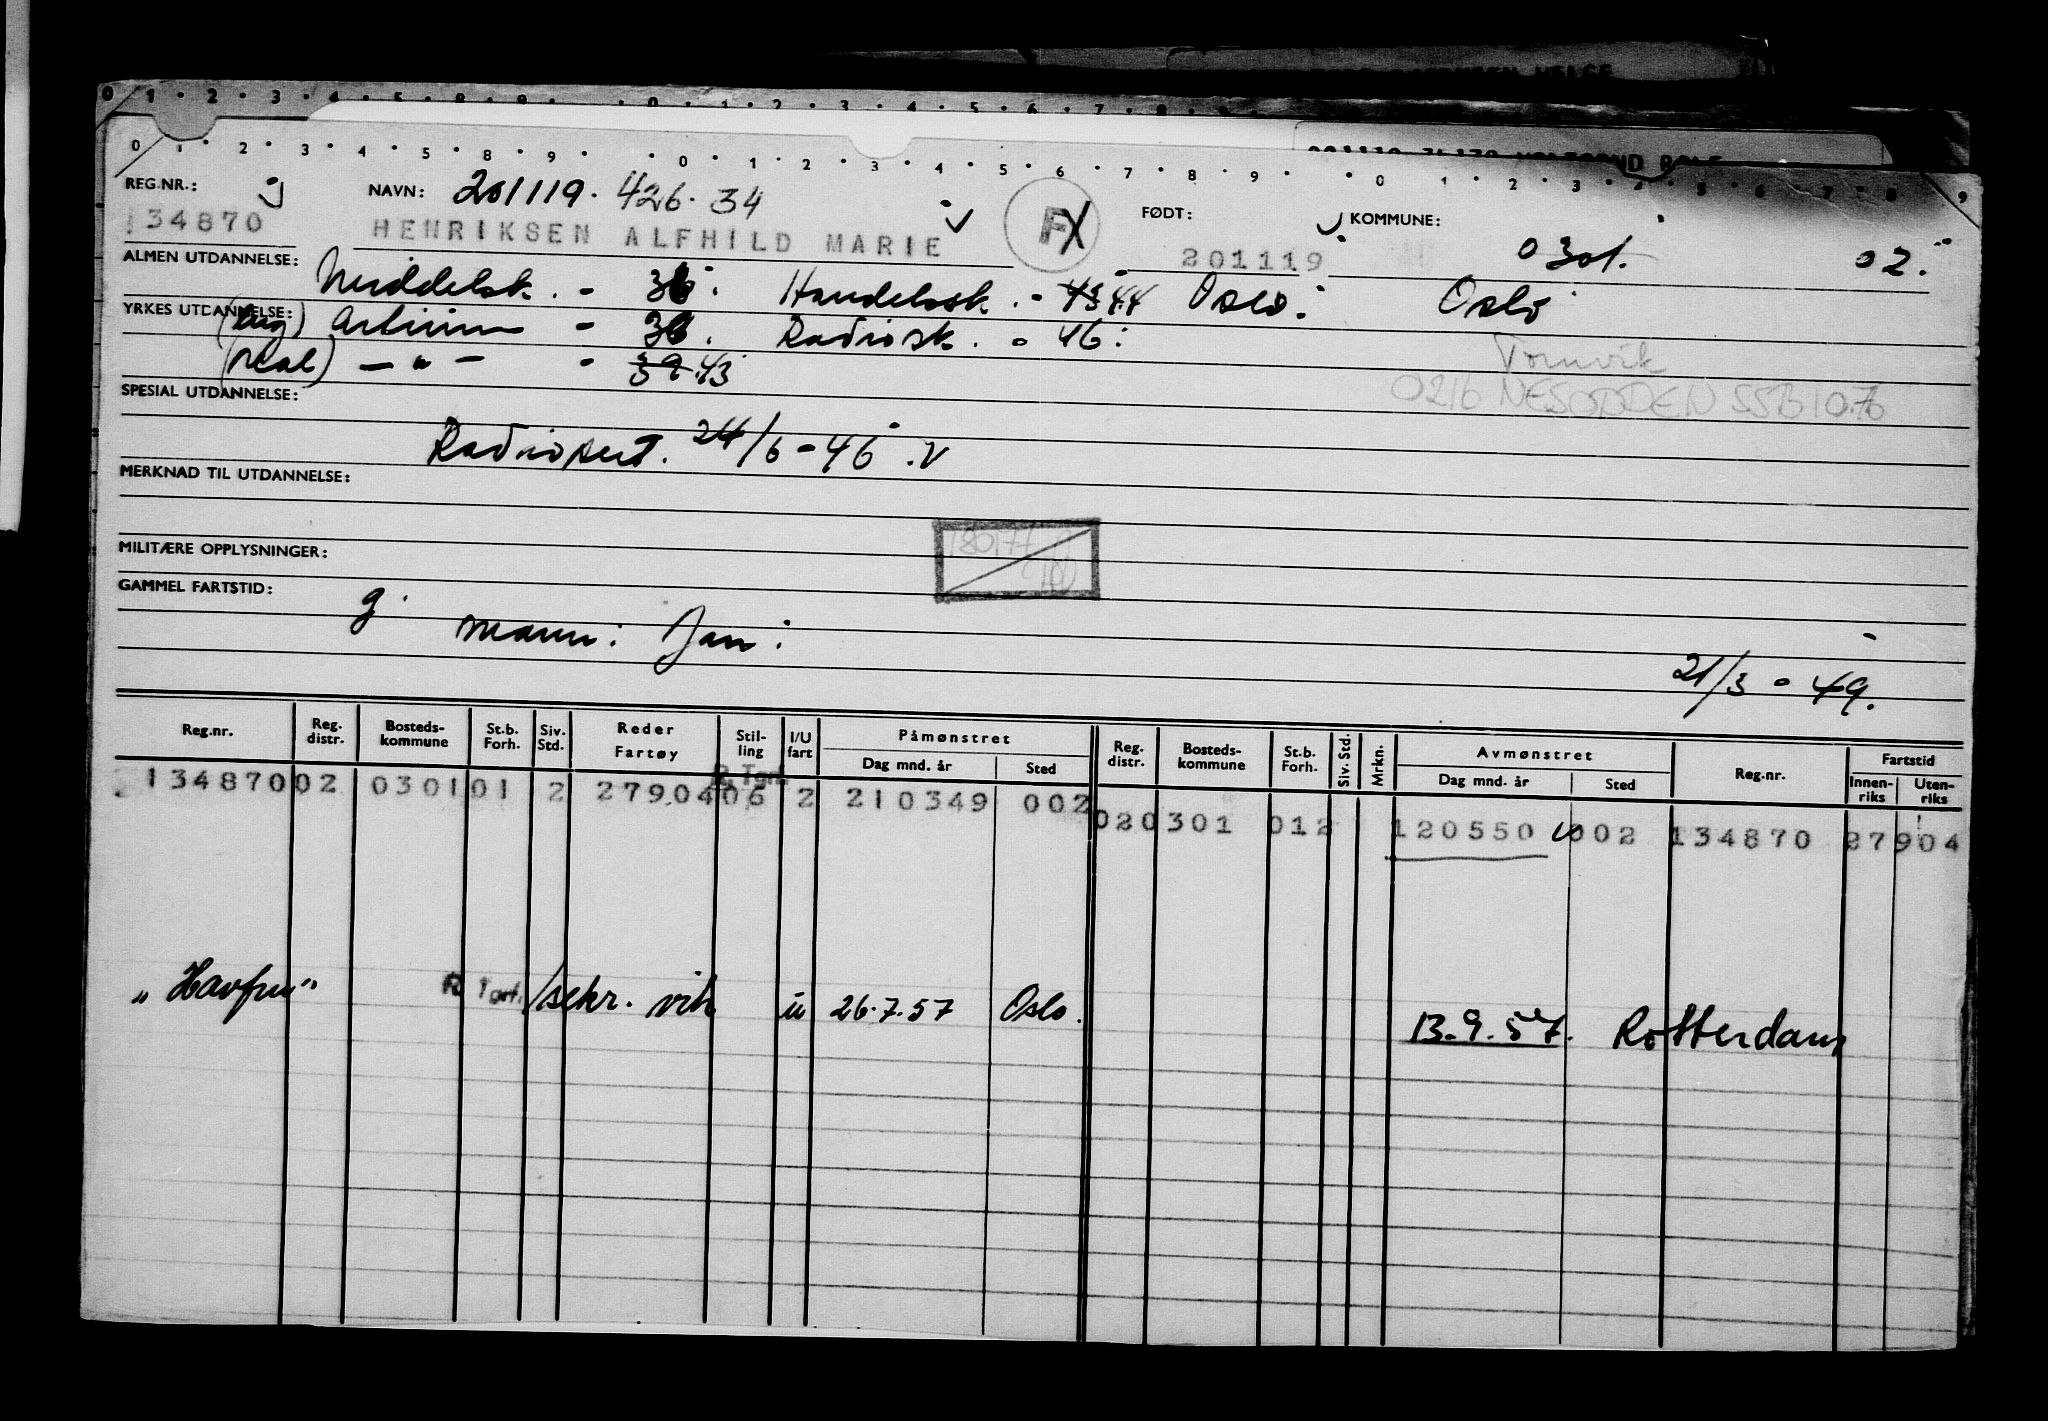 0 1 2 3 4 5 8 9 0 1 2 3 4 5 6 7 8 9
0 1 2 3 4 5 8 9 0 1 2 3 4 5 6 7 8 9 0 1 2 3 4 5 6 7 8 9
REG.NR.: g NAVN: 201119. 426. 34 FØDT: KOMMUNE:
134870 HENRIKSEN ALFHILD MARIE 201119 0301. 02.
ALMEN UTDANNELSE: Middelsk. - 36. Handelssk. - 43 44 Oslo. Oslo
YRKES UTDANNELSE: (Eng) Artium - 36. Radiosk. - 46.
(real) — " — - 39.43 Tornvik
0216 NESODDEN SSB 10.76
SPESIAL UTDANNELSE:
Radiosert. 24/6-46 .v
MERKNAD TIL UTDANNELSE:
180177
MILITÆRE OPPLYSNINGER:
GAMMEL FARTSTID: g.
mann: Jan.
21/3-49.
Reg.nr. Reg. distr. Bosteds-kommune St.b. Forh. Siv. Std. Reder Fartøy Stil-ling I/U fart Påmønstret Dag mnd. år Sted Reg. distr. Bosteds-kommune St.b. Forh. Siv. Std. Mrkn. Avmønstret Dag mnd. år Sted Reg.nr. Fartstid Innen-riks Uten-riks
R. Tgrf.
134870 02 0301 01 2 27904 06 2 210349 002 02 0301 012 120550 002 134870 27904
"Havfru" R Tgrf. /sekr. vik u 26.7.57 Oslo. 13.9.57. Rotterdam